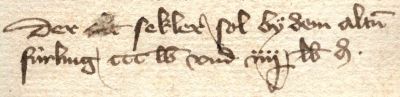 Der sekler sol by dem altn
fürling ccc lb vnd iiij lb ₰.